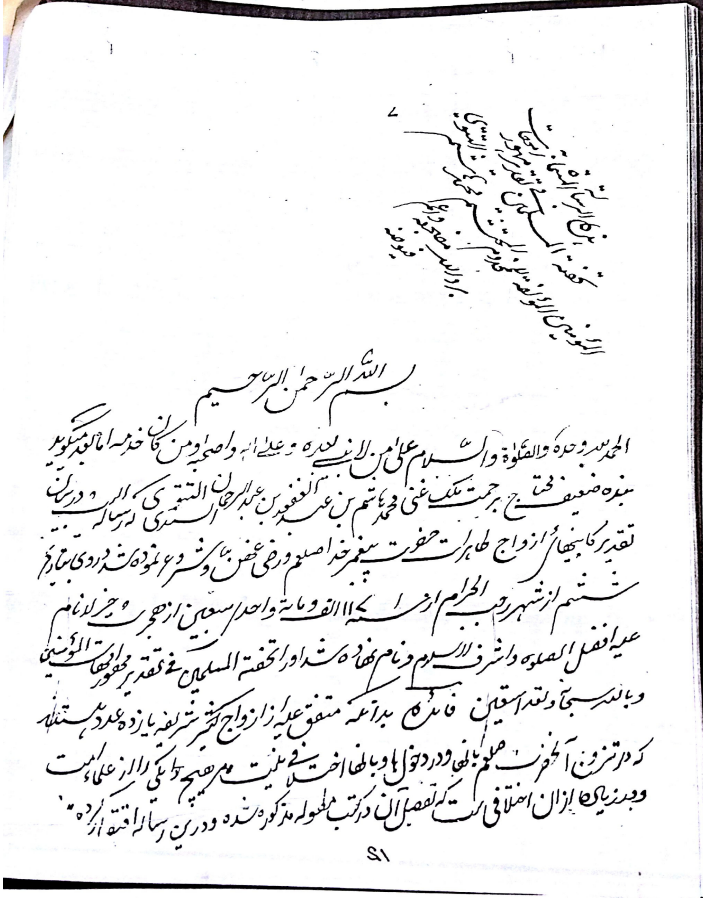 هذه الرسالة المسماة
تحفة المسلمين في تقدير مهور امهات
المؤمنين المؤلفة للمخدوم محمد هاشم التتوي
بسم الله الرحمن الرحيم
الحمد لله وحده والصلوة والسلام على من لا نبي بعده وعلى اله واصحابه ومن كان خدمه اما بعد میگوید
بنده ضعیف محتاج برحمت ملک غنی محمد هاشم بن عبد الغفور بن عبد الرحمان التتوی السندی که این رساله ایست در بیان
تقدیر کابینهای ازواج طاهرات حضرت پیغمبر خدا صلعم ورضی عنهن و شروع نموده شد در وی بتاریخ
ششم از شهر رجب الحرام از سنه ۱۱۷۱ الف ومایة واحد سبعین از هجرت خیر الانام
علیه افضل الصلوة واشرف السلام ونام نهاده شد او را تحفة المسلمین فی تقدیر مهور امهات المؤمنین
وبالله سبحانه وتعالی استعین فائده بدانکه متفق علیه از ازواج شریفه یازده عدد هستند
که در تزوج آنحضرت صلعم بانها ودر دخول او بانها اختلافی نیست هیچ یکی را از علماء امت
وبر زیاده ازان اختلافی است که تفصیل آن در کتب مطوله مذکور شده ودرین رساله اقتصار کرده